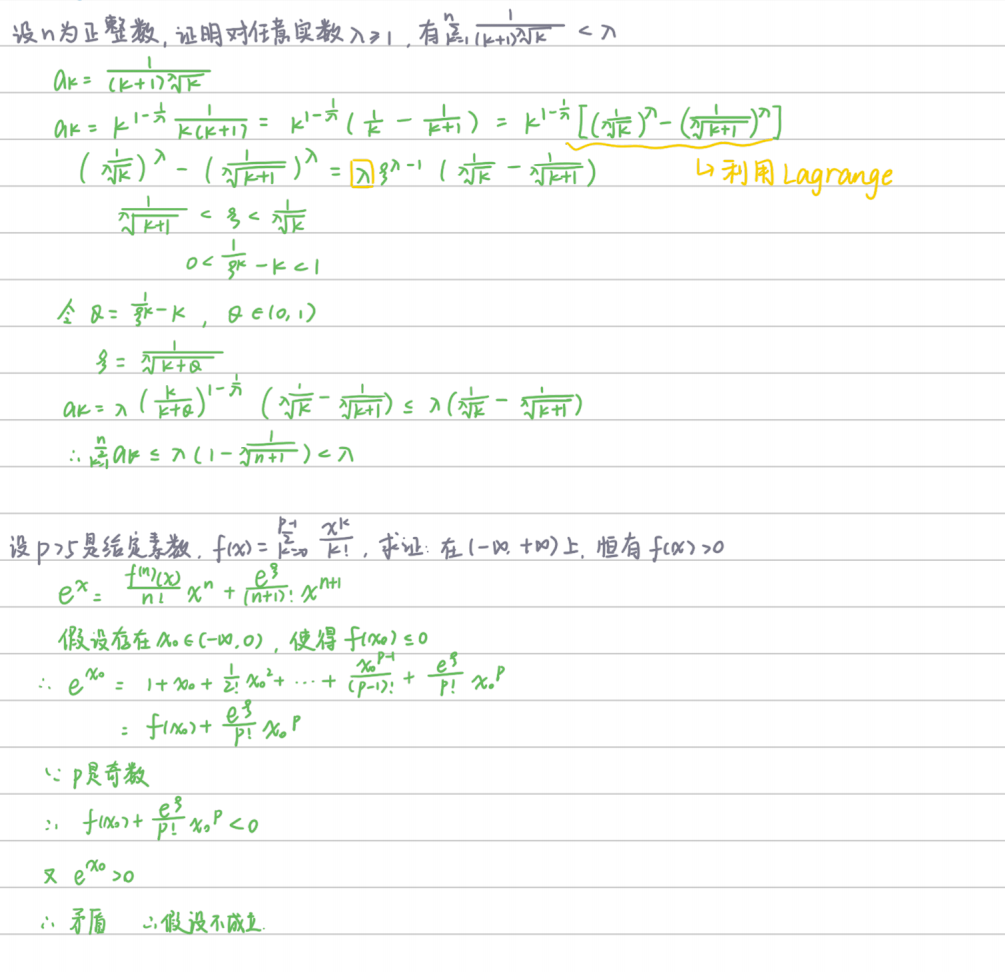 设n为正整数, 证明对任意实数 λ≥1, 有 \sum_{k=1}^{n} \frac{1}{(k+1)\sqrt[λ]{k}} < λ
a_k = \frac{1}{(k+1)\sqrt[λ]{k}}
a_k = k^{1-\frac{1}{λ}} \frac{1}{k(k+1)} = k^{1-\frac{1}{λ}} (\frac{1}{k} - \frac{1}{k+1}) = k^{1-\frac{1}{λ}} [(\frac{1}{\sqrt[λ]{k}})^λ - (\frac{1}{\sqrt[λ]{k+1}})^λ]
(\frac{1}{\sqrt[λ]{k}})^λ - (\frac{1}{\sqrt[λ]{k+1}})^λ = λ ξ^{λ-1} (\frac{1}{\sqrt[λ]{k}} - \frac{1}{\sqrt[λ]{k+1}}) ↳利用Lagrange
\frac{1}{\sqrt[λ]{k+1}} < ξ < \frac{1}{\sqrt[λ]{k}}
0 < \frac{1}{ξ^k} - k < 1
令 θ = \frac{1}{ξ^k} - k, θ∈(0,1)
ξ = \frac{1}{\sqrt[λ]{k+θ}}
a_k = λ (\frac{k}{k+θ})^{1-\frac{1}{λ}} (\frac{1}{\sqrt[λ]{k}} - \frac{1}{\sqrt[λ]{k+1}}) ≤ λ (\frac{1}{\sqrt[λ]{k}} - \frac{1}{\sqrt[λ]{k+1}})
∴ \sum_{k=1}^{n} a_k ≤ λ (1 - \frac{1}{\sqrt[λ]{n+1}}) < λ
设p>5是给定素数, f(x) = \sum_{k=0}^{p-1} \frac{x^k}{k!}, 求证: 在(-∞, +∞)上, 恒有f(x)>0
e^x = \frac{f^{(n)}(x)}{n!} x^n + \frac{e^ξ}{(n+1)!} x^{n+1}
假设存在x_0∈(-∞,0), 使得f(x_0)≤0
∴ e^{x_0} = 1 + x_0 + \frac{1}{2!} x_0^2 + ⋯ + \frac{x_0^{p-1}}{(p-1)!} + \frac{e^ξ}{p!} x_0^p
= f(x_0) + \frac{e^ξ}{p!} x_0^p
∵ p是奇数
∴ f(x_0) + \frac{e^ξ}{p!} x_0^p < 0
又 e^{x_0} > 0
∴ 矛盾 ∴假设不成立.